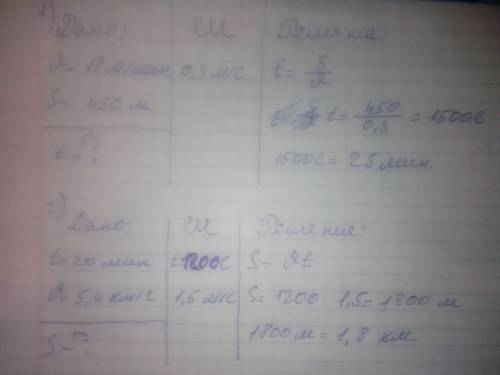 1) Дано: СИ Решение:
υ= 18 м/мин 0,3 м/с t= S/υ
S= 450 м t= 450/0,3 = 1500с
t=? 1500с= 25 мин.
2) Дано: СИ Решение:
t=20 мин 1200с S= υt
υ=5,4 км/ч 1,5 м/с S= 1200 · 1,5= 1800 м
S-? 1800м= 1,8 км.